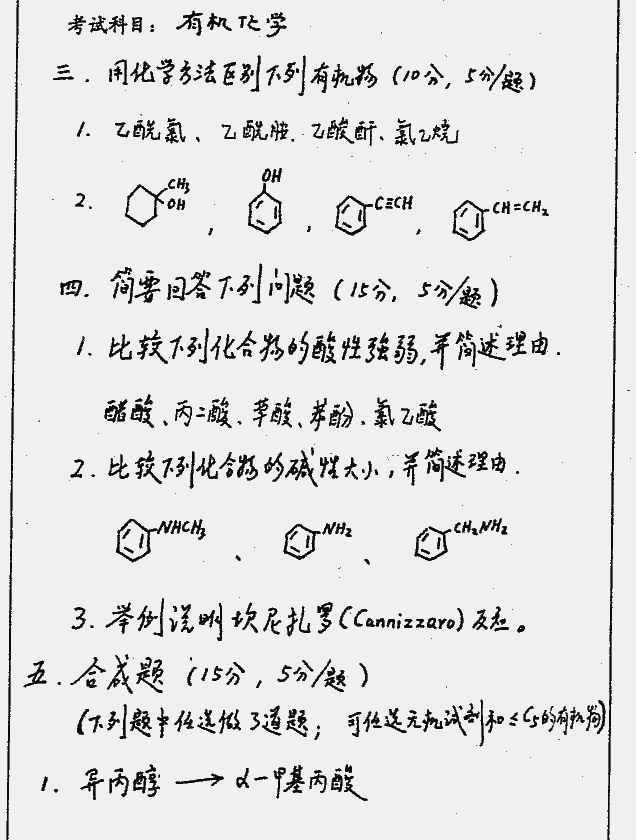 考试科目: 有机化学
三. 用化学方法区别下列有机物 (10分, 5分/题)
1. 乙酰氯、乙酰胺、乙酸酐、氯乙烷
2. CH₃ OH , OH , C≡CH , CH=CH₂
四. 简要回答下列问题 (15分, 5分/题)
1. 比较下列化合物的酸性强弱,并简述理由.
醋酸、丙二酸、草酸、苯酚、氯乙酸
2. 比较下列化合物的碱性大小,并简述理由.
NHCH₃ 、 NH₂ 、 CH₂NH₂
3. 举例说明坎尼扎罗(Cannizzaro)反应。
五. 合成题 (15分, 5分/题)
(下列题中任选做3道题; 可任选无机试剂和≤C₅的有机物)
1. 异丙醇 ⟶ α-甲基丙酸